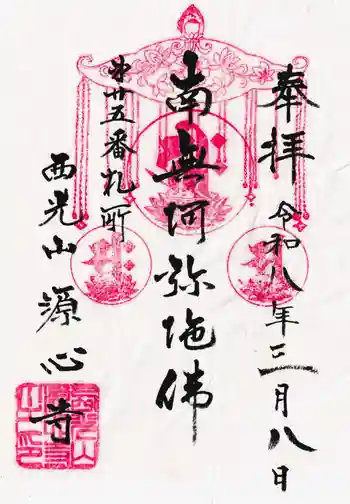 奉拝 令和八年三月八日
南無阿弥陀佛
第廿五番札所
西光山 源心寺